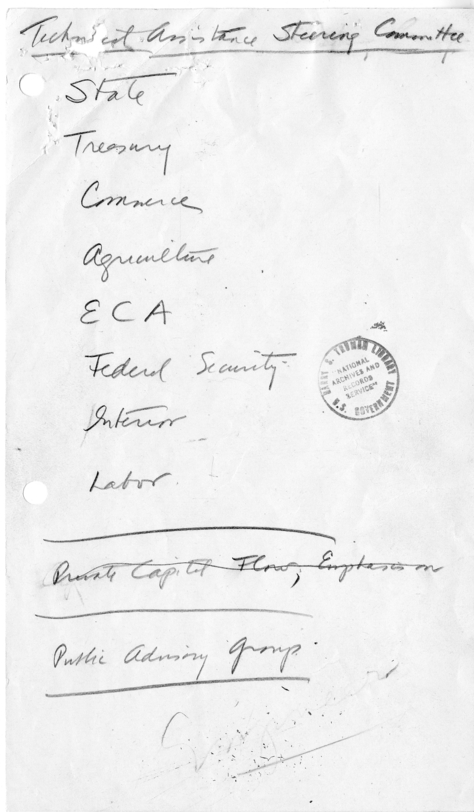 Technical Assistance Steering Committee
State
Treasury
Commerce
Agriculture
ECA
Federal Security
Interior
Labor
Private Capital Flow, Emphasis on
Public Advisory Group.
HARRY S. TRUMAN LIBRARY
NATIONAL
ARCHIVES AND
RECORDS
SERVICE
U.S. GOVERNMENT